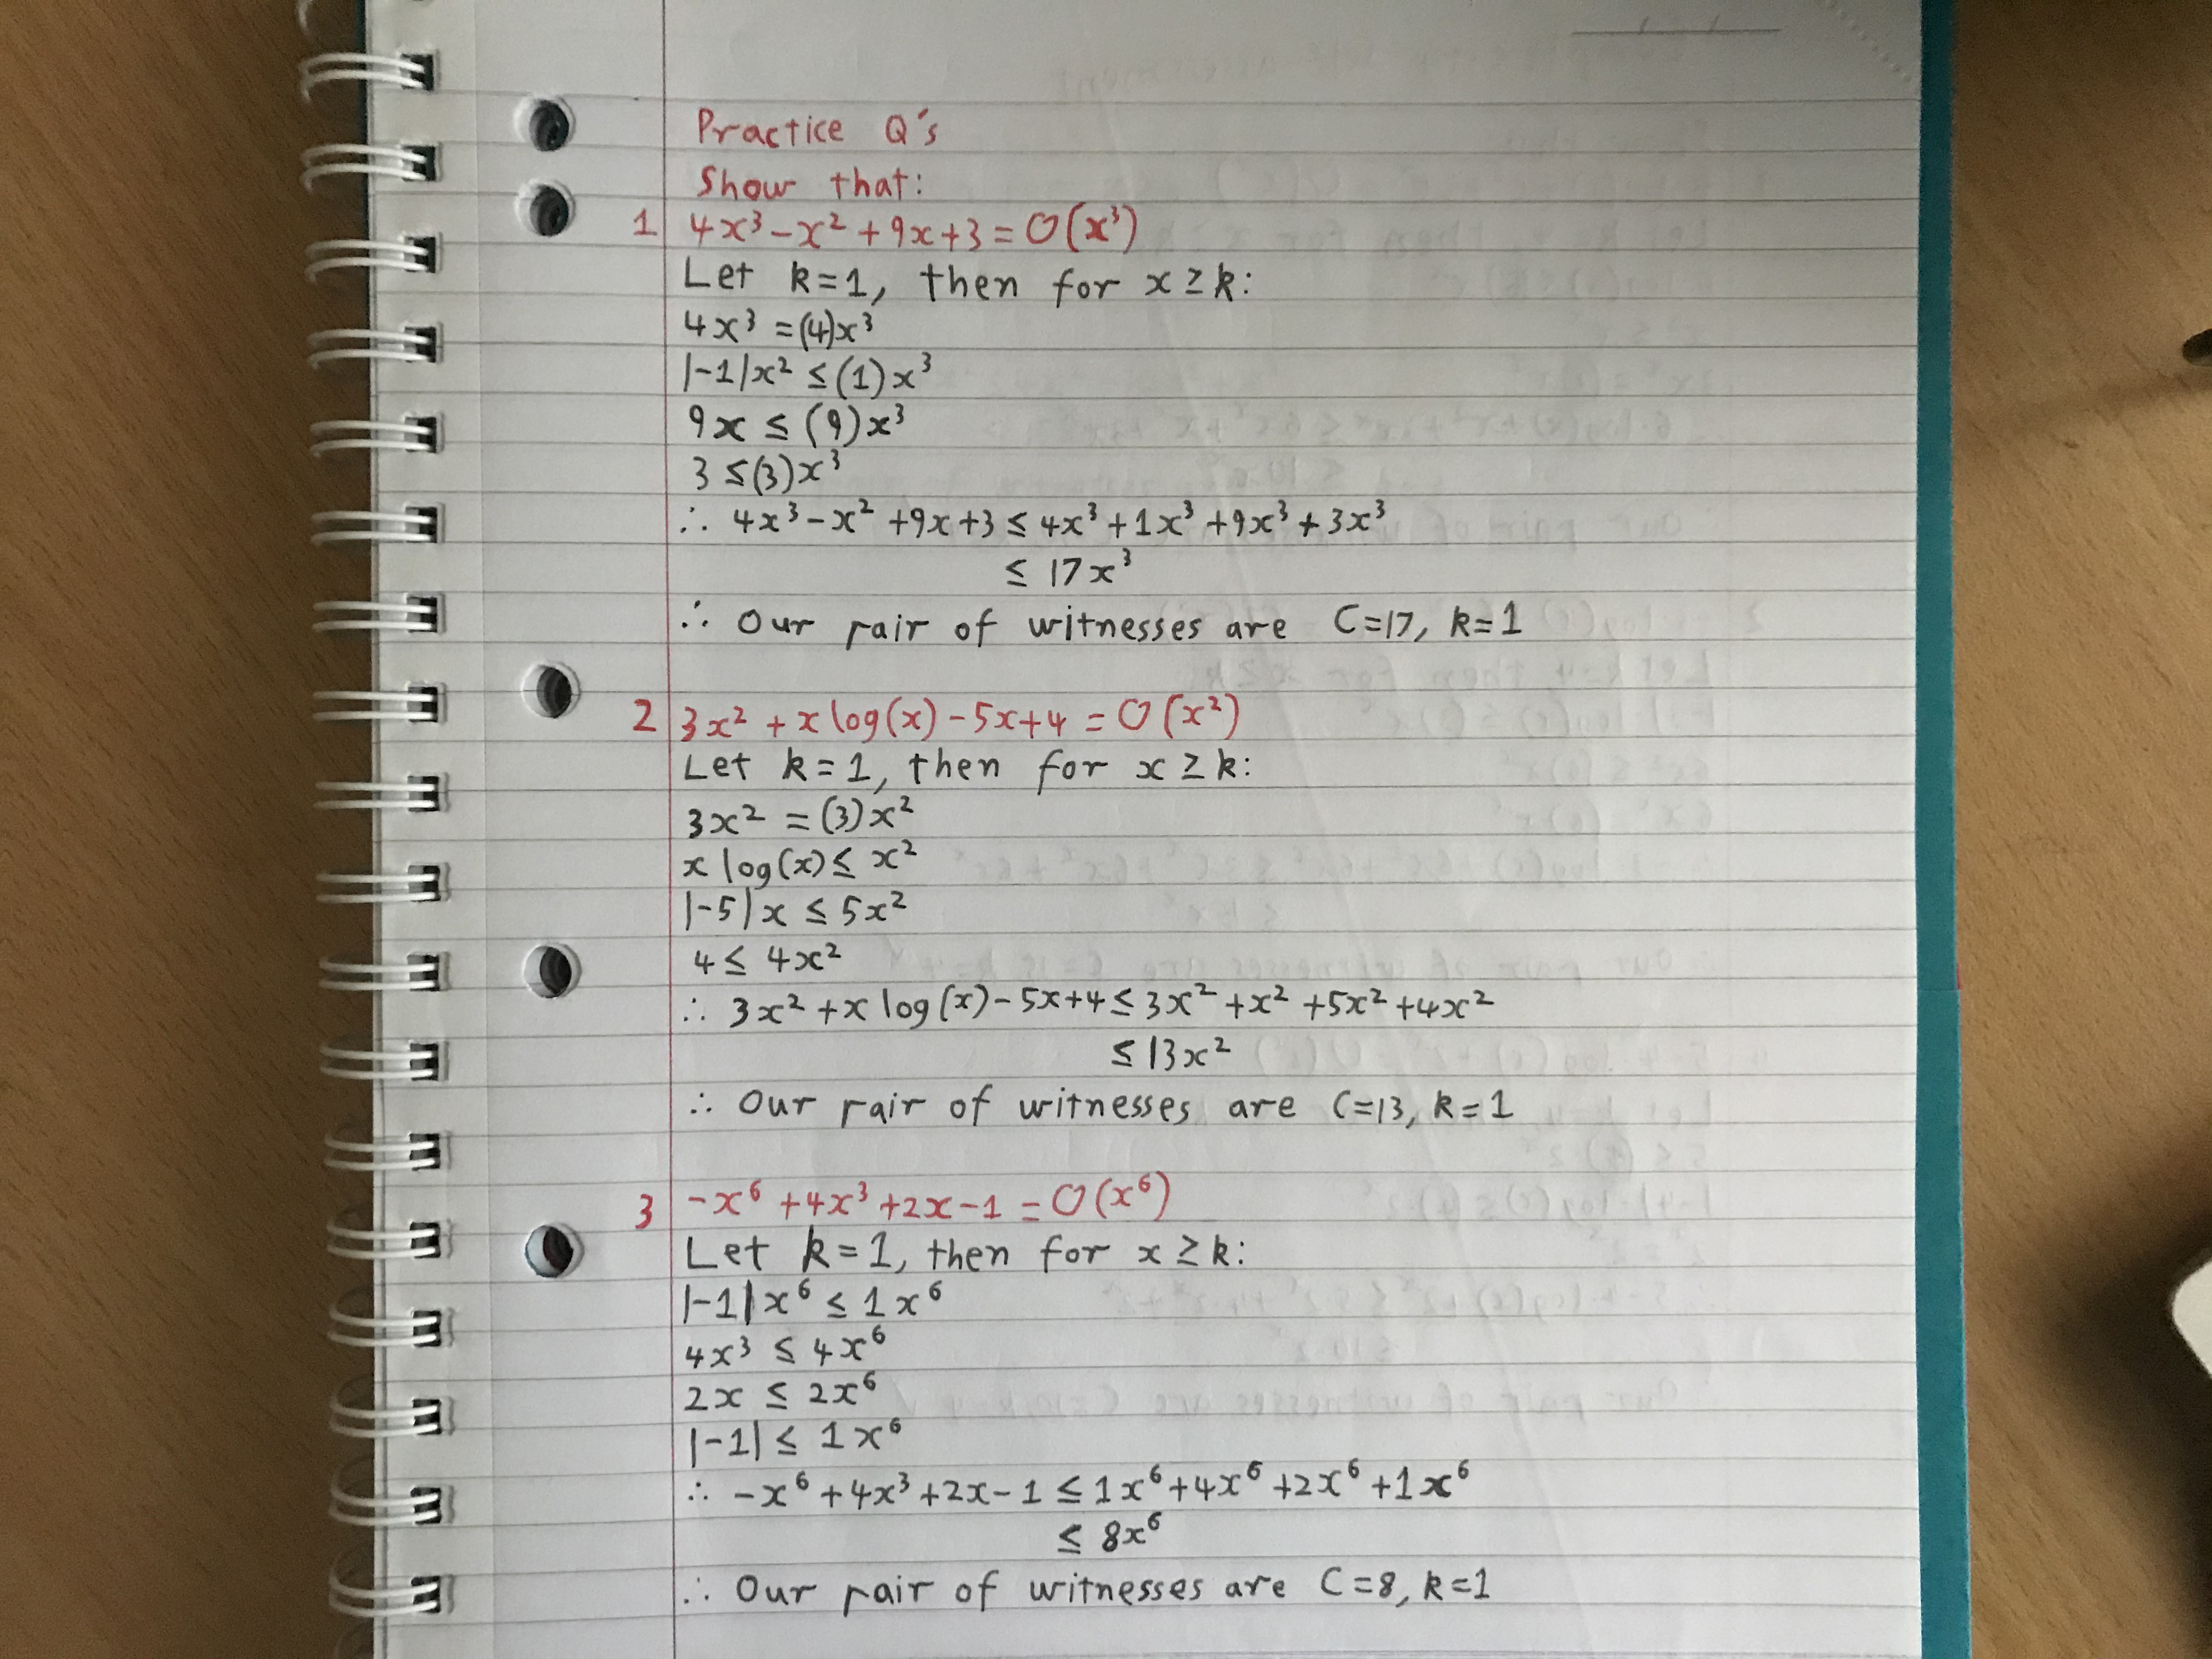 Practice Q's
Show that:
1 4x³-x²+9x+3=O(x³)
Let k=1, then for x≥k:
4x³=(4)x³
|-1|x²≤(1)x³
9x≤(9)x³
3≤(3)x³
∴ 4x³-x²+9x+3≤4x³+1x³+9x³+3x³
≤17x³
∴ Our pair of witnesses are C=17, k=1
2 3x²+x log(x)-5x+4=O(x²)
Let k=1, then for x≥k:
3x²=(3)x²
x log(x)≤x²
|-5|x≤5x²
4≤4x²
∴ 3x²+x log(x)-5x+4≤3x²+x²+5x²+4x²
≤13x²
∴ Our pair of witnesses are C=13, k=1
3 -x⁶+4x³+2x-1=O(x⁶)
Let k=1, then for x≥k:
|-1|x⁶≤1x⁶
4x³≤4x⁶
2x≤2x⁶
|-1|≤1x⁶
∴ -x⁶+4x³+2x-1≤1x⁶+4x⁶+2x⁶+1x⁶
≤8x⁶
∴ Our pair of witnesses are C=8, k=1